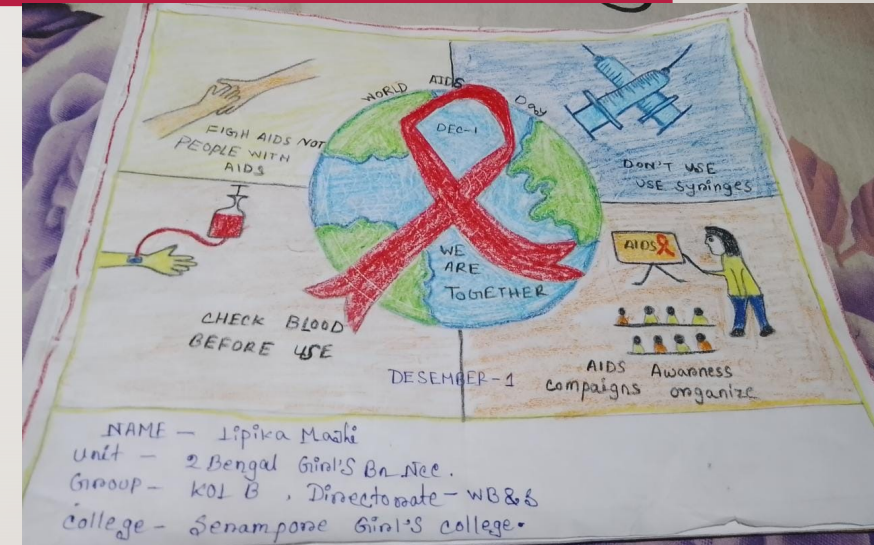 WORLD AIDS Day
DEC-1
FIGH AIDS NOT
PEOPLE WITH
AIDS
DON'T USE
USE Syringes
AIDS
WE
ARE
TOGETHER
CHECK BLOOD
BEFORE USE
DESEMBER-1
AIDS Awarness
compaigns organize
NAME - Lipika Majhi
unit - 2 Bengal Girl'S Bn Ncc.
Group - KOL B , Directorate - WB & S
college - Serampore Girl'S college.